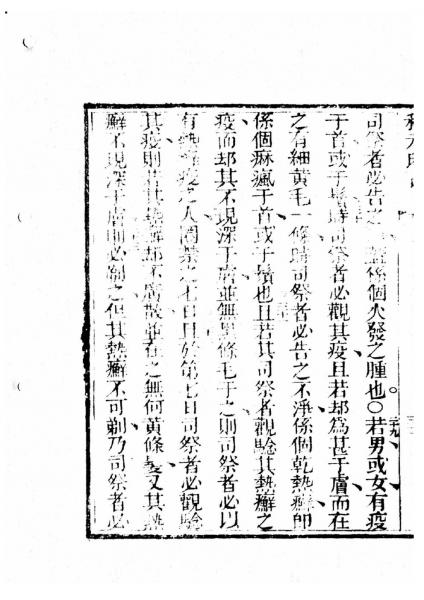 司祭者必告之 蓋係個火發之腫也〇若男或女有疫
于首或于鬚時司祭者必觀其疫且若却為甚于膚而在
之有細黃毛一條時司祭者必告之不淨係個乾熱癬即
係個痳瘋于首或于鬚也且若其司祭者觀驗其熱癬之
疫而却其不現深于膚並無黑條毛于之則司祭者必以
有熱癬疫之人關禁之七日且於第七日司祭者必觀驗
其疫則若其熱癬却不廣散並在之無何黃條髮又其熱
癬不現深于膚則必剃之但其熱癬不可剃乃司祭者必